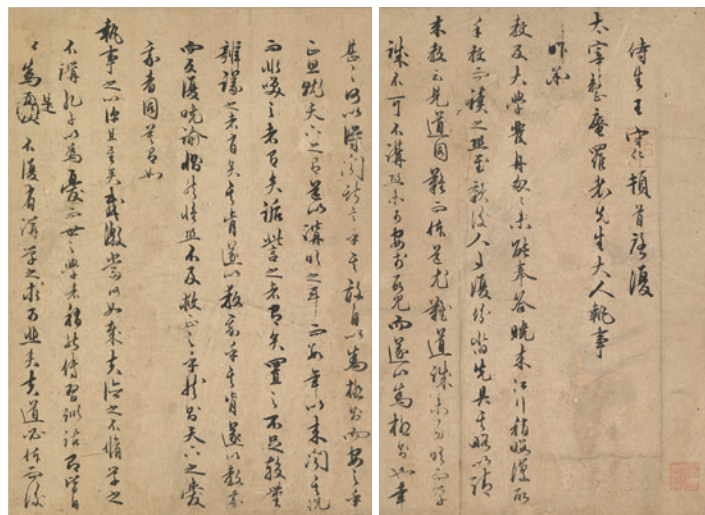 侍生王守仁頓首啓復
太宰整庵羅老先生大人執事
昨承
教及大學發舟匆匆未能奉答曉來江行稍暇復取
手教而讀之恐至贛後人事復紛沓先具其略以請
來教云見道固難而體道尤難道誠未易明而學
誠不可不講恐未可安於所見而遂以為極則也幸
甚幸甚何以得聞斯言乎其敢自以為極則而安之乎
正思就天下之有道以講明之耳而數年以來聞其說
而非笑之者有矣詬訾之者有矣置之不足較量
辨議之者有矣其肯遂以教我乎其肯遂以教我
而反復曉諭惻然惟恐不及救正之乎然則天下之愛
我者固莫有如
執事之心深且至矣感激當何如哉夫德之不脩學之
不講孔子以為憂而世之學者稍能傳習訓詁即皆自
以為是不復有講學之求可悲矣夫道必體而後